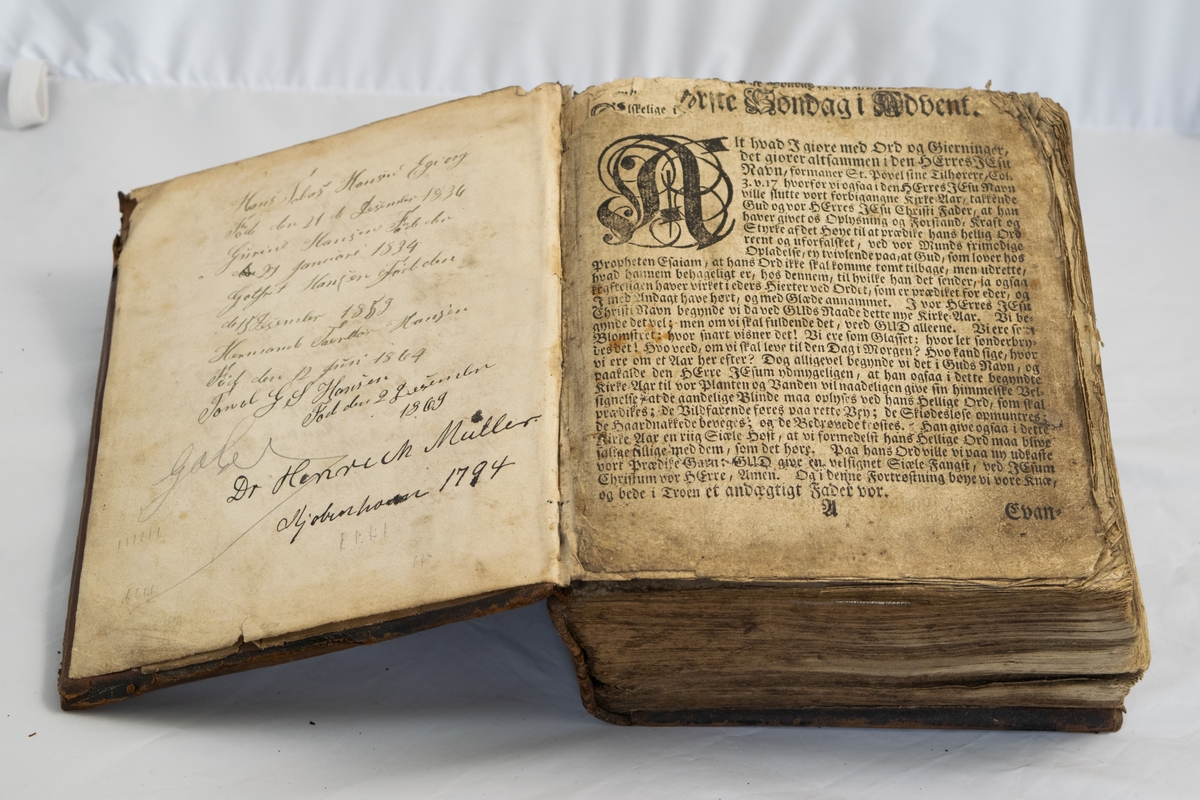 Hans Hansen
Föd den 21 de Desember 1836
Hansen Föd den
den 21 Januari 1834
Hansen Föd den
de 15 Desember
Hermand Hansen
Föd den Juni 1864
G S Hansen
Föd den 2 Desember
1869
Dr Henrich Müller
Kjøbenhavn 1794
Søndag i Advent.
Elskelige i
Alt hvad I giøre med Ord og Gierninger,
det giører altsammen i den HErres JEsu
Navn, formaner St. Povel sine Tilhørere, Col.
3. v. 17 hvorfor vi ogsaa i den HErres JEsu Navn
ville slutte vort forbigangne Kirke-Aar, takkende
Gud og vor HErres JEsu Christi Fader, at han
haver givet os Oplysning og Forstand, Kraft og
Styrke af det Høye til at prædike hans hellig Ord
reent og uforfalsket, ved vor Munds frimodige
Opladelse, ey tvivlende paa, at Gud, som lover hos
Propheten Esaiam, at hans Ord ikke skal komme tomt tilbage, men udrette,
hvad hannem behageligt er, hos dennem, til hvilke han det sender, ja ogsaa
kræfteligen haver virket i eders Hierter ved Ordet, som er prædiket for eder, og
I med Andagt have hørt, og med Glæde annammet. I vor HErres JEsu
Christi Navn begynde vi da ved GUds Naade dette nye Kirke-Aar. Vi be-
gynde det vel; men om vi skal fuldende det, veed GUD alleene. Vi ere som
Blomstret; hvor snart visner det! Vi ere som Glasset; hvor let sønderbry-
des det! Hvo veed, om vi skal leve til den Dag i Morgen? Hvo kand sige, hvor
vi ere om et Aar her efter? Dog alligevel begynde vi det i Guds Navn, og
paakalde den HErre JEsum ydmygeligen, at han ogsaa i dette begyndte
Kirke-Aar til vor Planten og Vanden vil naadeligen give sin himmelske Vel-
signelse, at de aandelige Blinde maa oplyses ved hans Hellige Ord, som skal
prædikes; de Vildfarende føres paa rette Vey; de Skiødesløse opmuntres;
de Haardnakkede beveges; og de Bedrøvede trøstes. Han give ogsaa i dette
Kirke Aar en riig Siæle Høst, at vi formedelst hans Hellige Ord maa blive
salige tillige med dem, som det høre. Paa hans Ord ville vi paa ny udkaste
vort Prædike Garn: GUD give en velsignet Siæle Fangst, ved JEsum
Christum vor HErre, Amen. Og i denne Fortrøstning bøye vi vore Knæ,
og bede i Troen et andægtigt Fader vor.
A Evan-